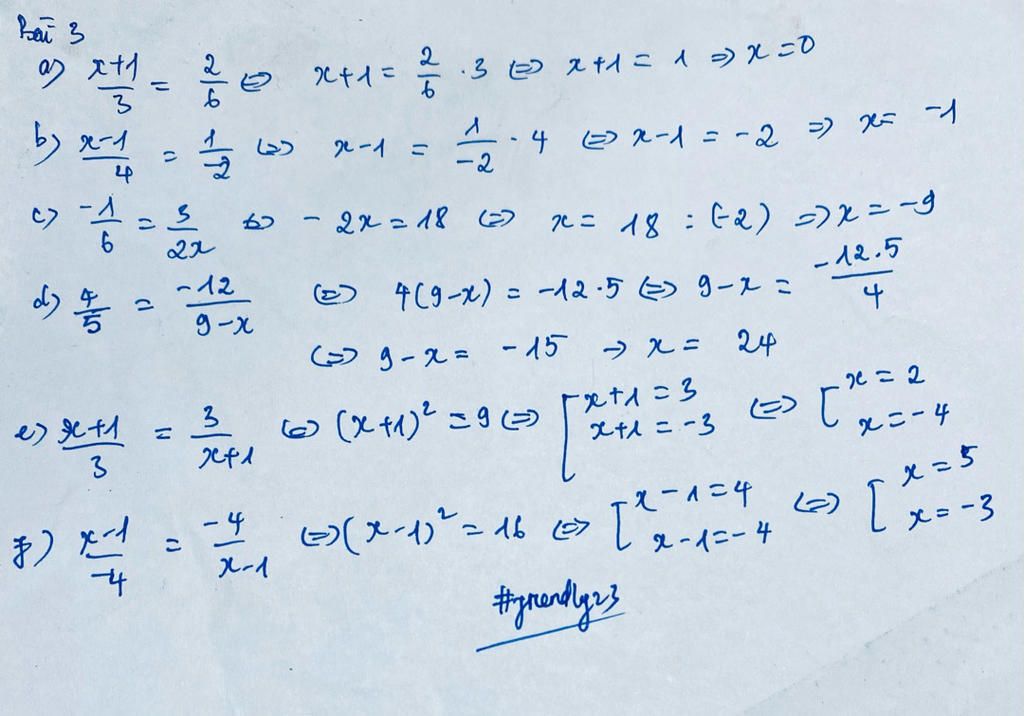 Bài 3
a) x+1/3 = 2/6 ⇔ x+1 = 2/6 . 3 ⇔ x+1 = 1 ⇒ x=0
b) x-1/4 = 1/-2 ⇔ x-1 = 1/-2 . 4 ⇔ x-1 = -2 ⇒ x= -1
c) -1/6 = 3/2x ⇔ - 2x = 18 ⇔ x = 18 : (-2) ⇒ x = -9
d) 4/5 = -12/9-x ⇔ 4(9-x) = -12.5 ⇔ 9-x = -12.5/4
⇔ 9-x = -15 → x = 24
e) x+1/3 = 3/x+1 ⇔ (x+1)² = 9 ⇔ [x+1 = 3 x+1 = -3 ⇔ [x = 2 x = -4
f) x-1/-4 = -4/x-1 ⇔ (x-1)² = 16 ⇔ [x-1=4 x-1=-4 ⇔ [x = 5 x = -3